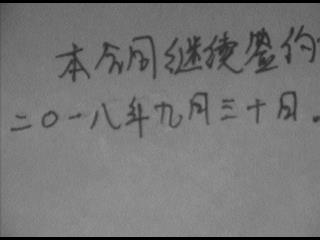 本合同继续签约
二〇一八年九月三十日.